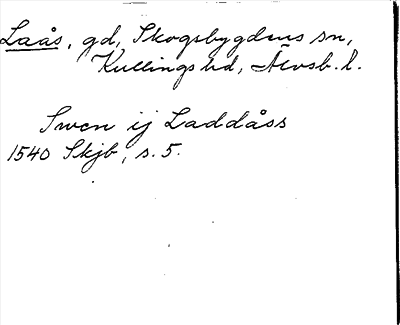 Laås, gd, Skogsbygdens sn,
Kullings hd, Älvsb. l.
Swen ij Laddåss
1540 Skjb, s. 5.